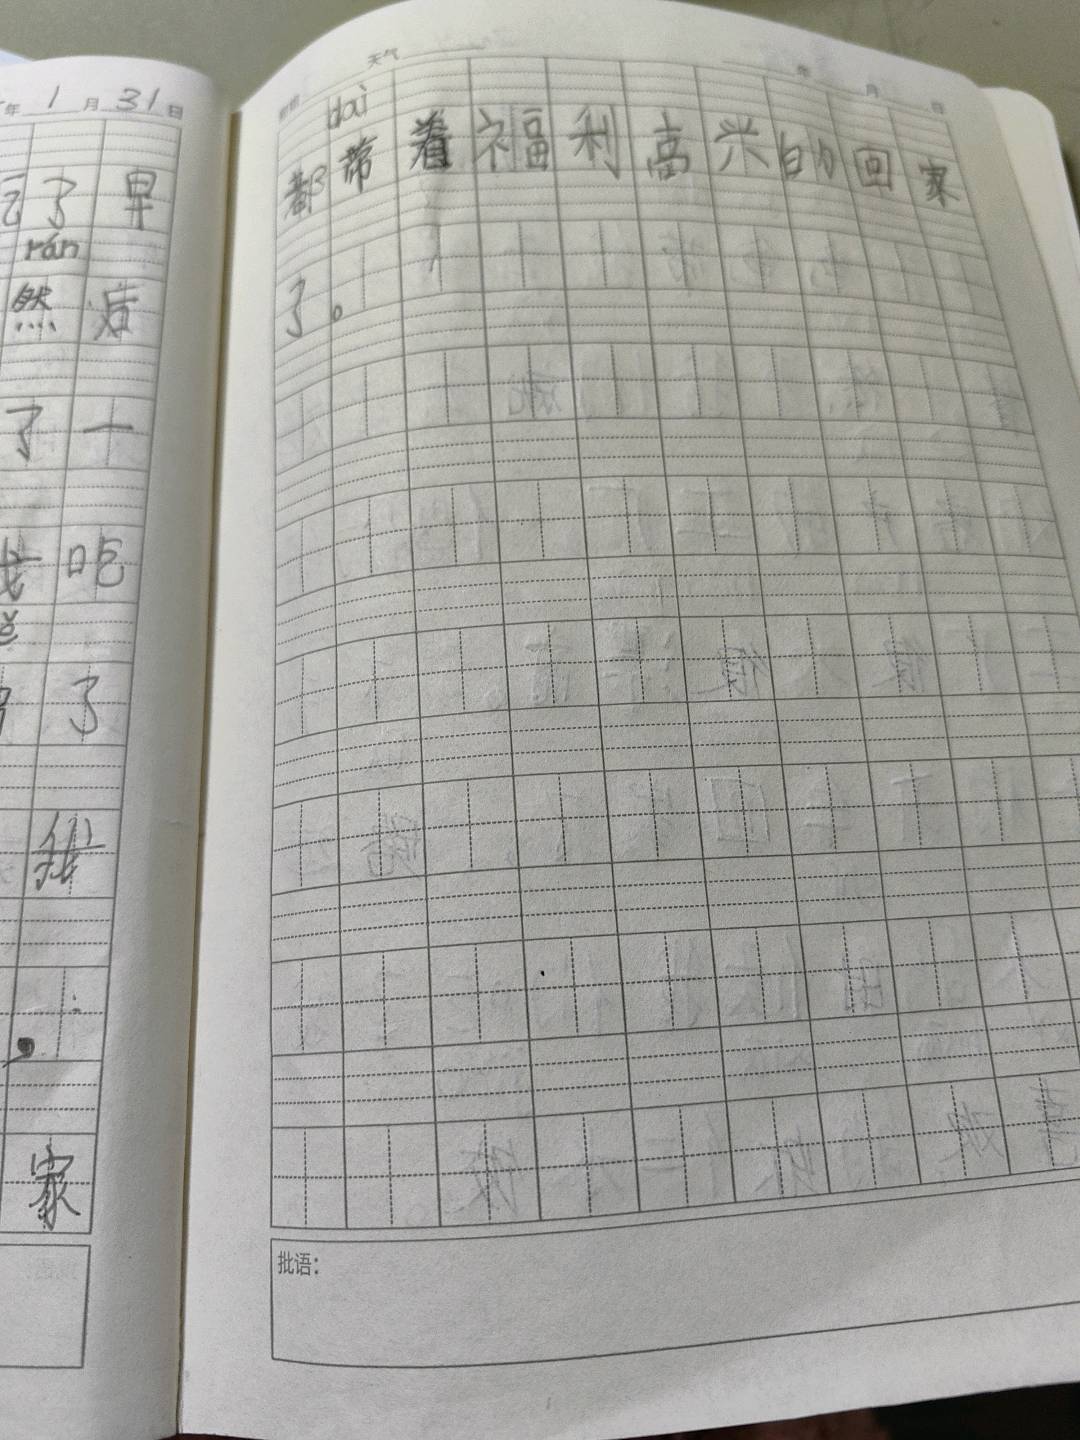 年 1 月 31 日
了 早
rán
然 后
了 一
我 吃
了
，
家
天气 年 月 日
dài
都 带 着 福 利 高 兴 的 回 家
了 。
批语：